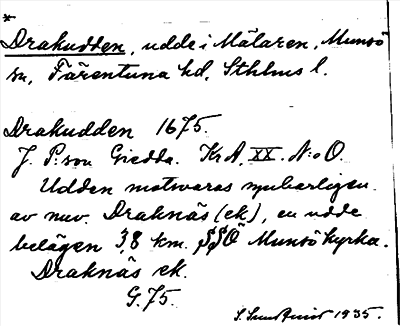 *
Drakudden, udde i Mälaren, Munsö
sn, Färentuna hd, Sthlms l.
Drakudden 1675.
J. P:son Giedda. KrA, XX. N:o O.
Udden motsvaras uppenbarligen
av nuv. Draknäs (ek), en udde
belägen 3,8 km. SSÖ Munsö kyrka.
Draknäs ek.
G. 75.
1935.